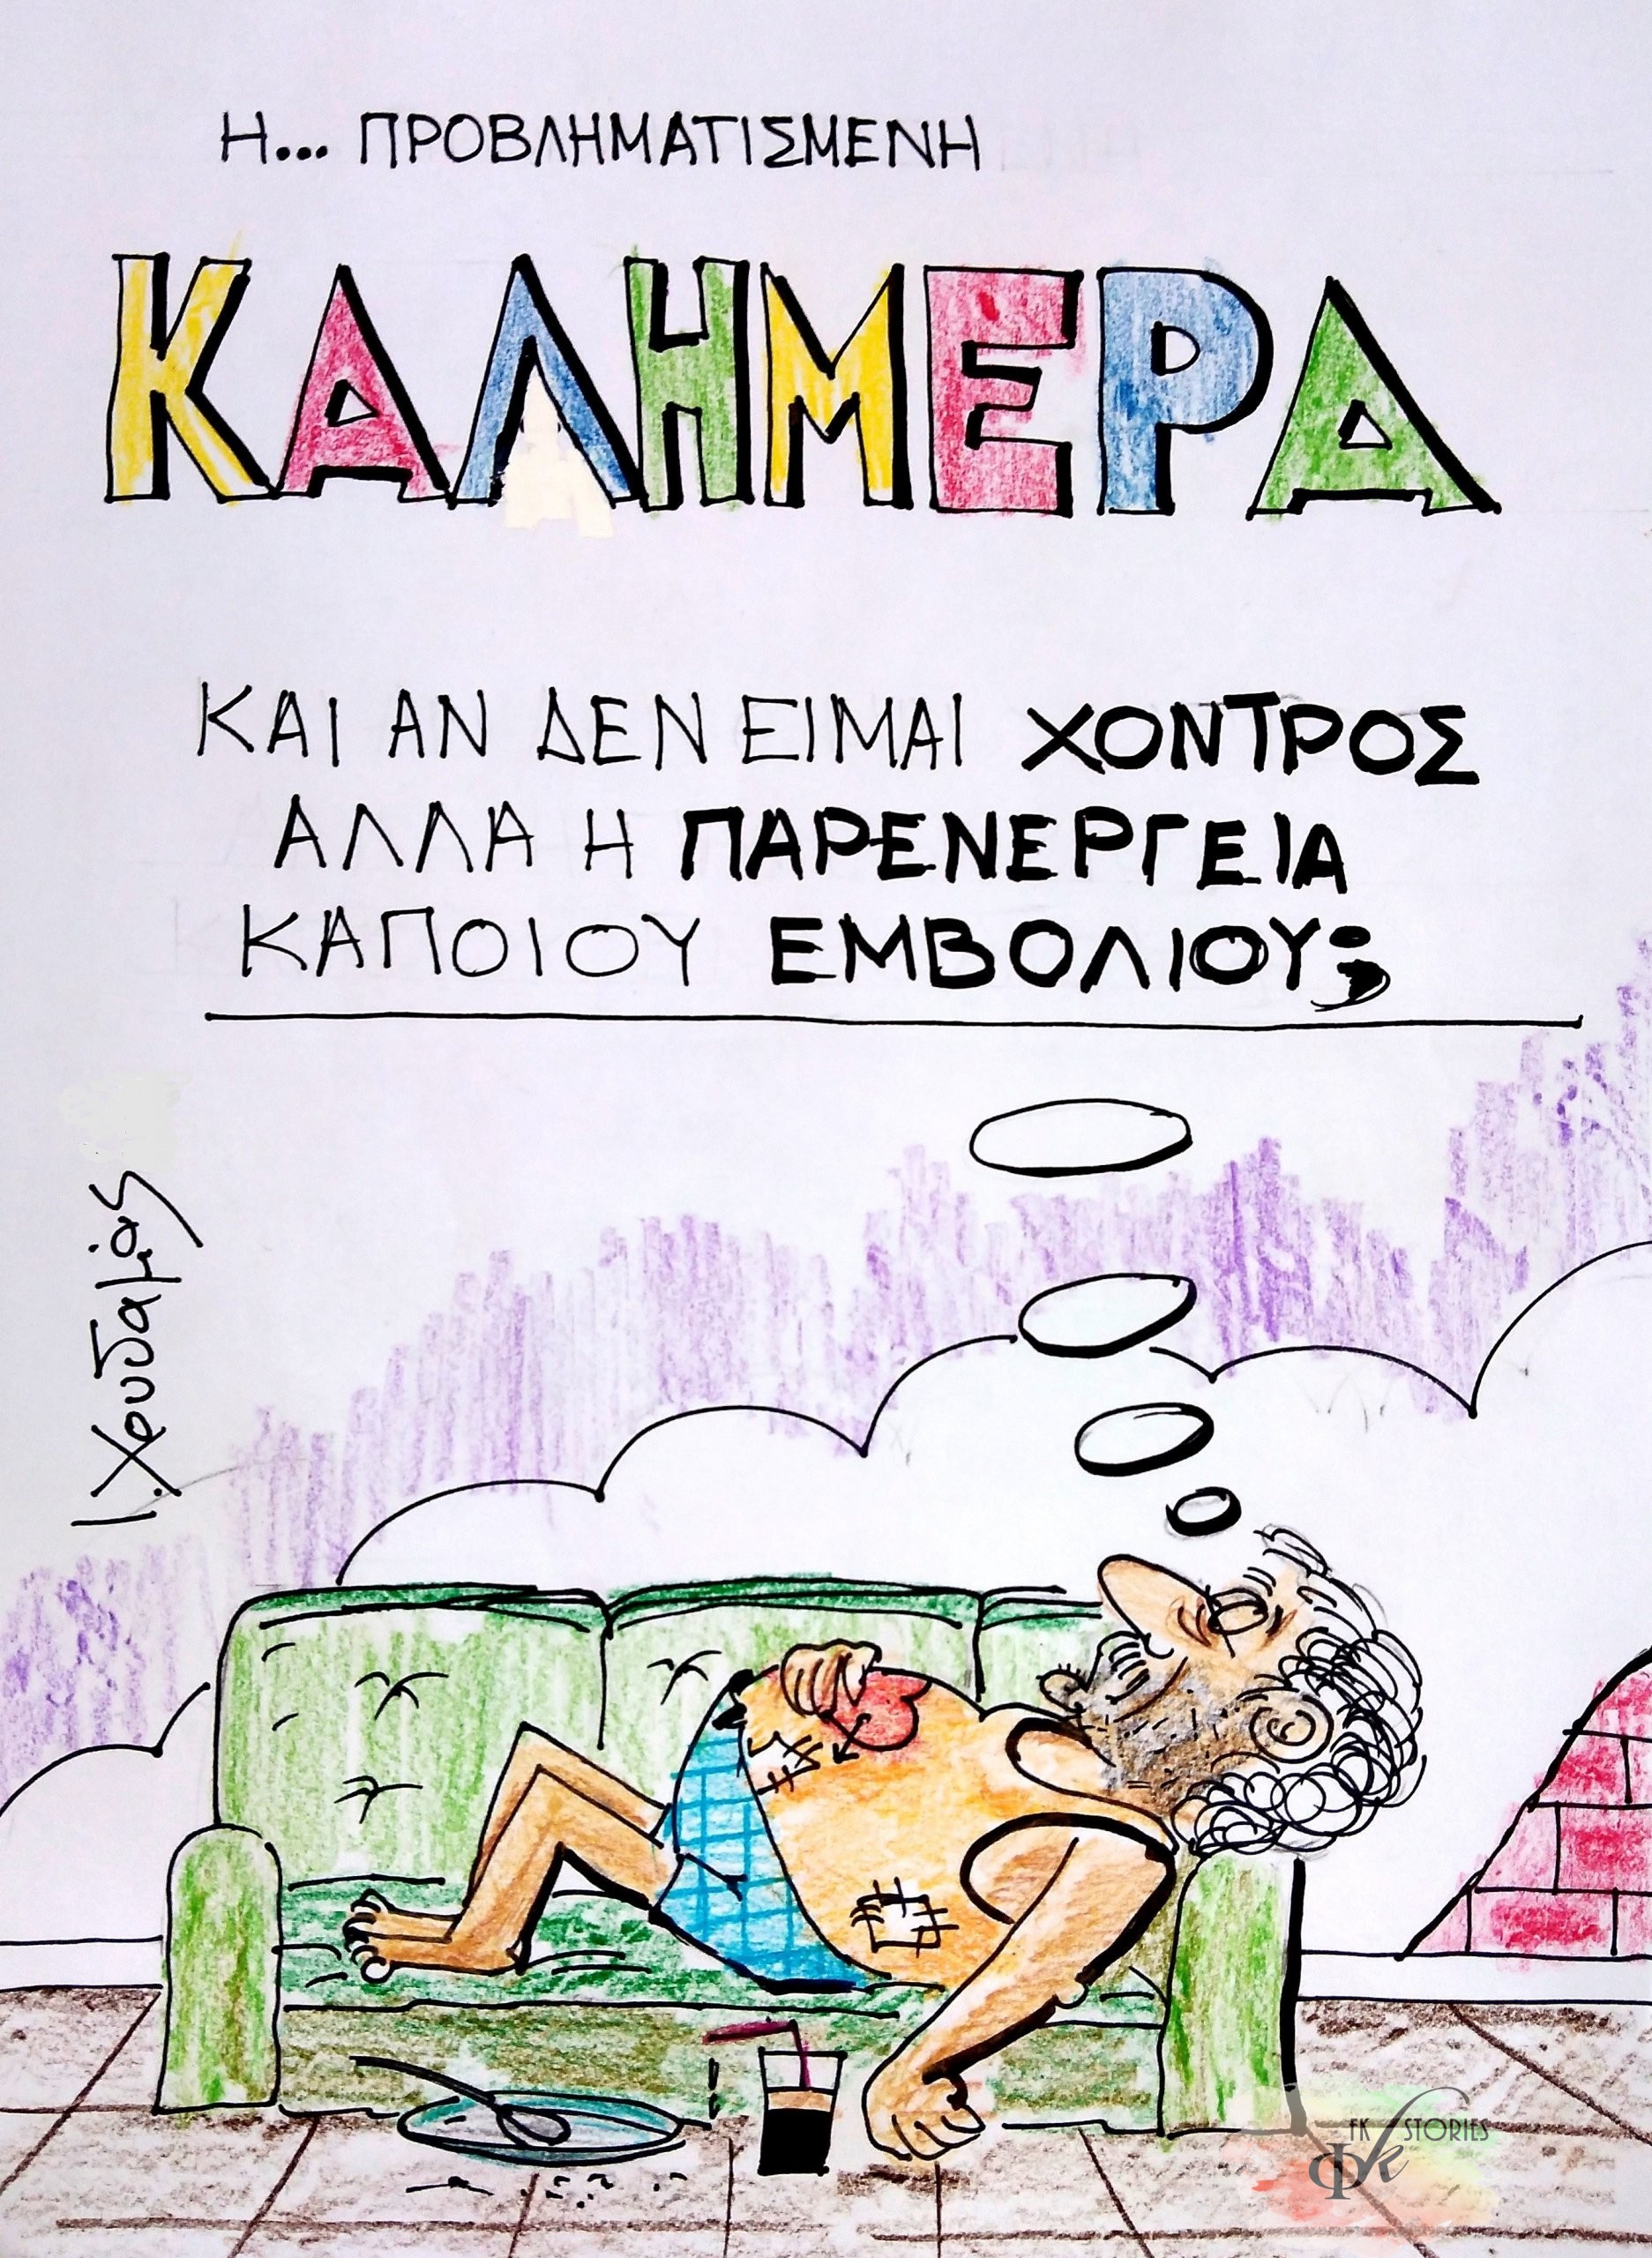 Η... ΠΡΟΒΛΗΜΑΤΙΣΜΕΝΗ
ΚΑΛΗΜΕΡΑ
ΚΑΙ ΑΝ ΔΕΝ ΕΙΜΑΙ ΧΟΝΤΡΟΣ
ΑΛΛΑ Η ΠΑΡΕΝΕΡΓΕΙΑ
ΚΑΠΟΙΟΥ ΕΜΒΟΛΙΟΥ;
FK STORIES